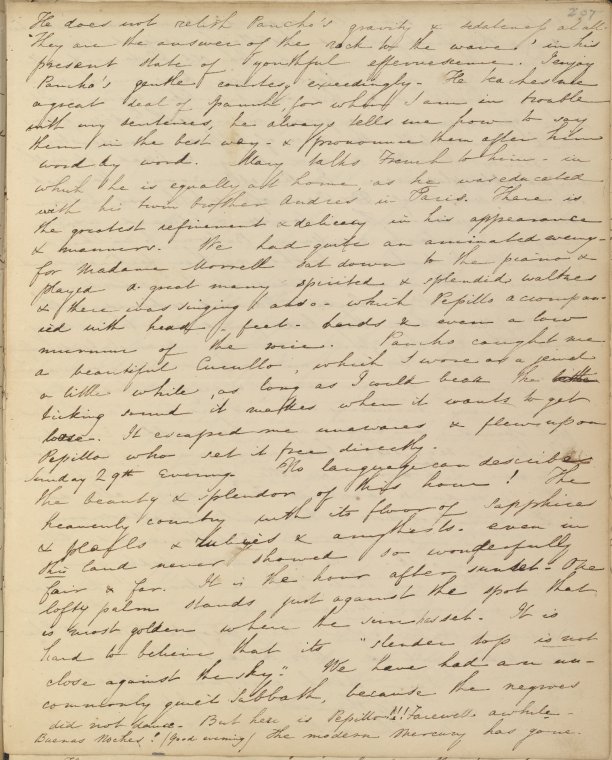 207
He does not relish Pancho's gravity & sedateness at all.
"They are the answer of the rock to the wave" in his
present state of youthful effervescence. I enjoy
Pancho's gentle courtesy exceedingly. He teaches me
a great deal of Spanish, for when I am in trouble
with my sentences, he always tells me how to say
them in the best way - & I pronounce them after him
word by word. Mary talks French to him - in
which he is equally at home, as he was educated
with his twin brother Andres in Paris. There is
the greatest refinement & delicacy in his appearance
& manners. We had quite an animated evening -
for Madame Morrell sat down to the piano &
played a great many spirited & splendid waltzes
& there was singing also - which Pepillo accompan-
ied with head - feet - hands & even a low
murmur of the voice. Pancho caught me
a beautiful Cucullo, which I wore as a jewel
a little while, as long as I could bear the
ticking sound it makes when it wants to get
loose. It escaped me unawares & flew upon
Pepillo who set it free directly.
Sunday 29th Evening No language can describe
the beauty & splendor of this hour! The
heavenly country with its floor of sapphires
& & rubies & amythests. even in
this land never showed so wonderfully
fair & far. It is the hour after sunset - One
lofty palm stands just against the spot that
is most golden where the sun has set. It is
hard to believe that its "slender top is not
close against the sky." We have had an un-
commonly quiet Sabbath, because the negroes
did not dance. But here is Pepillo!!! Farewell awhile -
Buenas Noches! (Good evening) The modern Mercury has gone.